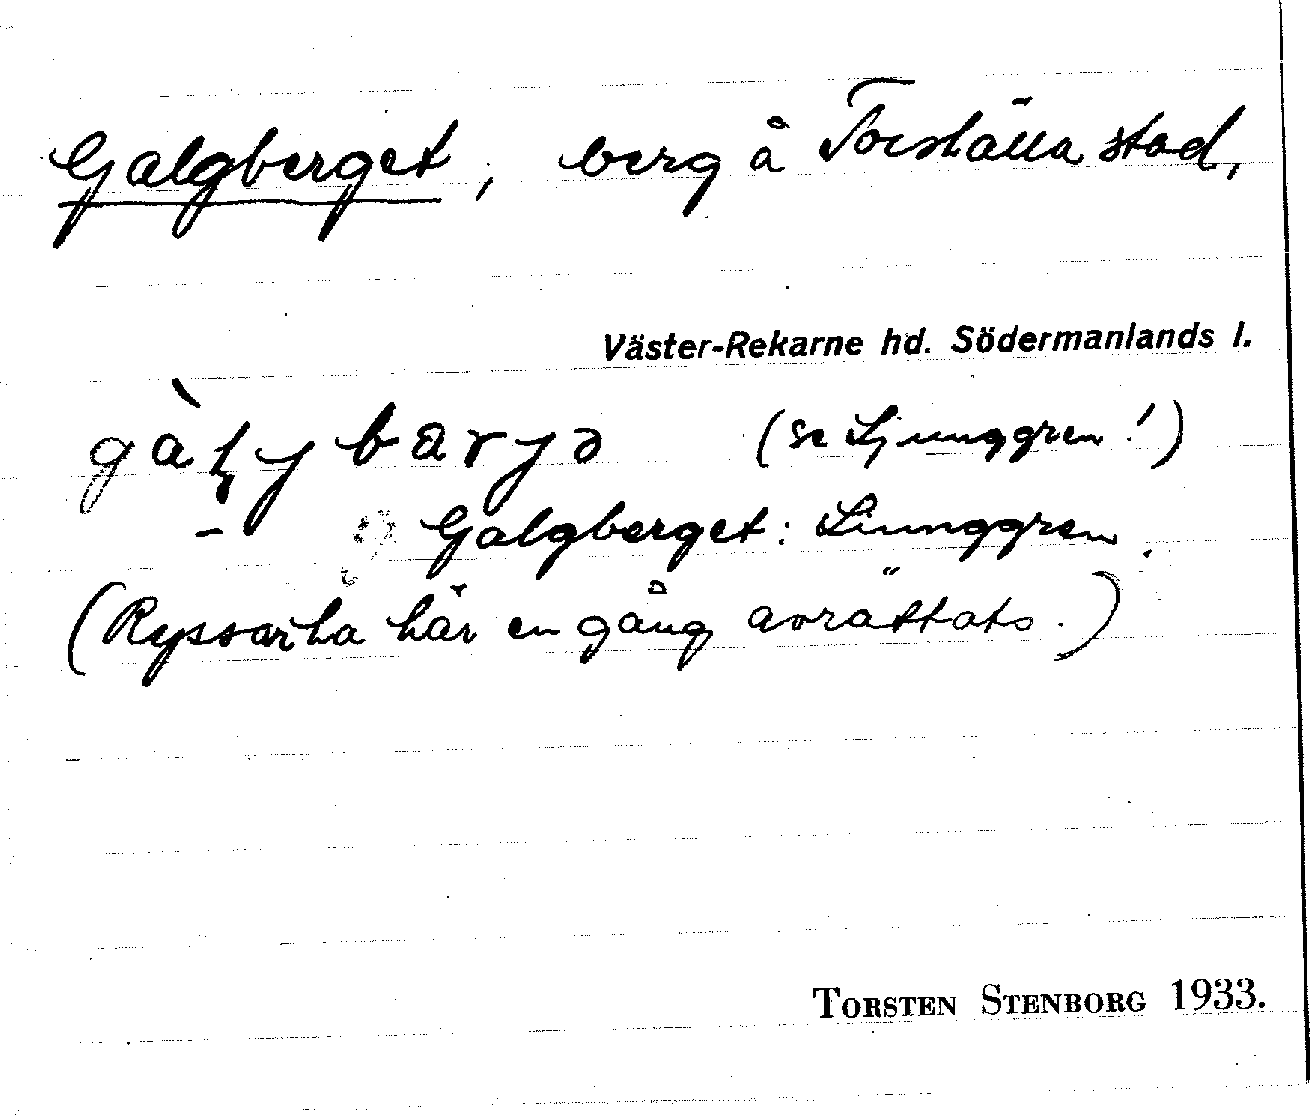 Galgberget, berg å Torshälla stad,
Väster-Rekarne hd. Södermanlands l.
(se Ljunggren!)
Galgberget: Ljunggren.
(Ryssar ha här en gång avrättats.)
TORSTEN STENBORG 1933.